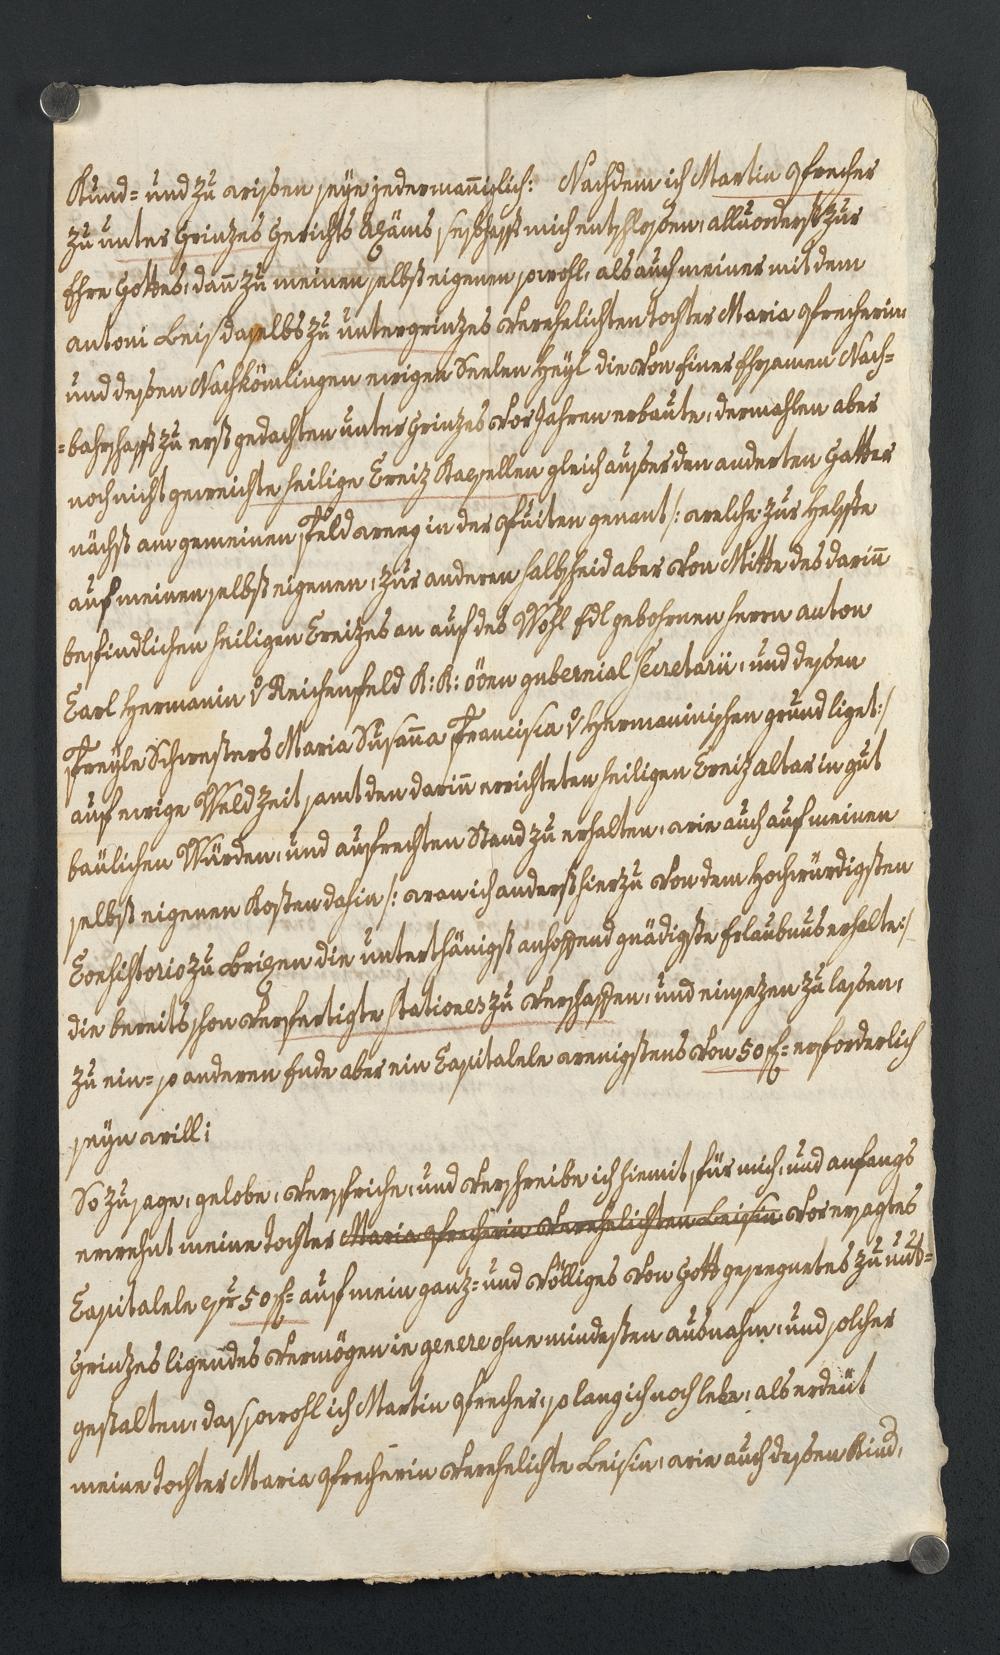 Kund= und zu wissen seye jedermañiglich: Nachdem ich Martin Pfrecher
zu unter Grinzes Gerichts Axäms seshafft mich entschlossen, alluorderst zur
Ehre Gottes, dañ zu meinen selbst eigenen sowohl, als auch meiner mit dem
antoni Leis daselbs zu untergrinzes Verehelichten tochter Maria Pfrecherin
und dessen Nachkömlingen ewigen Seelen Heyl die Von Einer Ehrsamen Nach=
=bahrschafft zu erst gedachten unter Grinzes Vor Jahren erbaute, dermahlen aber
noch nicht geweichte heilige Creiz Kapellen gleich ausser den anderten Gatter
nächst am gemeinen Feld weeg in der genant /: welche zur Helffte
auf meinen selbst eigenen, zur anderen halbscheid aber Von Mitte des dariñ
befindlichen heiligen Creizes an auf des Wohl Edl gebohrnen Herrn anton
Carl Hermanin v Reichenfeld K: K: öoen gubernial Secretarii, und dessen
Freyle Schwesters Maria Susaña Francisca v Hermaninischen grund liget :/
auf ewige Weldzeit samt den dariñ errichteten heiligen Creiz altar in gut
baulichen Würden, und aufrechten Stand zu erhalten, wie auch auf meinen
selbst eigenen Kosten dahin /: wan ich anderst hierzu Von dem Hochwürdigsten
Consistorio zu Brixen die unterthänigst anhoffend gnädigste Erlaubnus erhalte :/
die bereits schon Verfertigte Stationes zu Verschaffen, und einsezen zu lassen,
zu ein= so anderen Ende aber ein Capitalele wenigstens Von 50 f= erforderlich
seyn will;
So zusage, gelobe, Versprich, und Verschreibe ich hiemit für mich, und anfangs
erwehnt meine tochter Maria Pfrecherin Verehelichten Leisin Vorersagtes
Capitalele per 50 f= auf mein ganz= und Völliges Von Gott gesegnetes zu unt=
Grinzes ligendes Vermögen in genere ohne mindesten ausnahm, und solcher
gestalten, das sowohl ich Martin Pfrecher, so lang ich noch lebe, als erdeüt
meine tochter Maria Pfrecherin Verehelichte Leisin, wie auch dessen Kind,